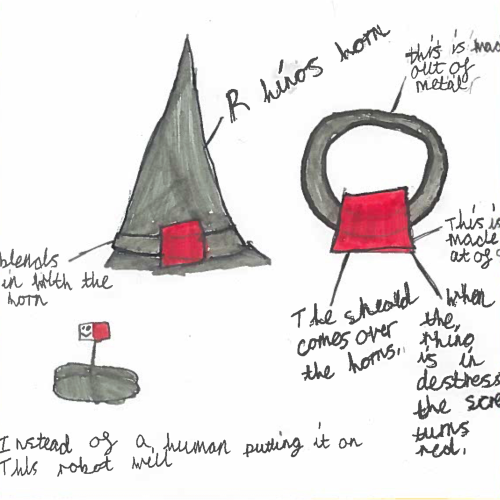 Rhinos horn
this is
out of
metal
blends
in with the
horn
This is
made
The
comes over
the horns.
When
the
rhino
is in
destress
the scre
turns
red.
Instead of a human putting it on
This robot will